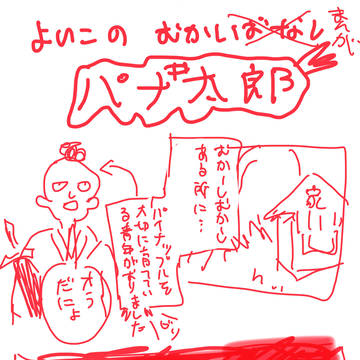 よいこの むかいばなし
まんが
パナ太郎
むかーしむかし
ある所に…
家
パイナップルを
大切に育ててい
る青年がおりました
オラ
だによ